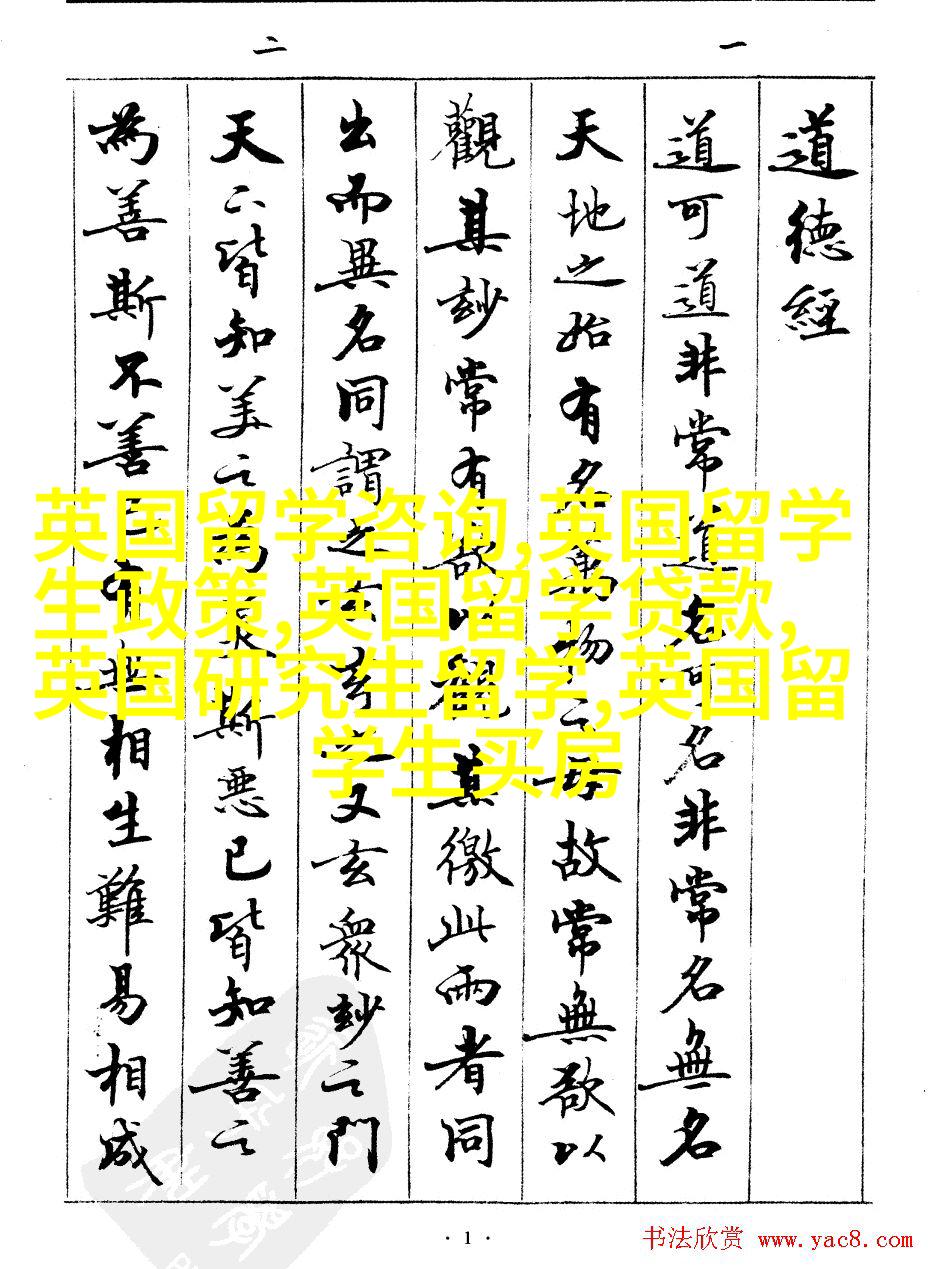 二
一
道德經
道可道非常道名可名非常名無名
天地之始有名萬物之母故常無欲以
觀其玅常有欲以觀其徼此兩者同
出而異名同謂之玄玄之又玄衆玅之門
天下皆知美之為美斯惡已皆知善之
為善斯不善已有無相生難易相成
英国留学咨询,英国留学
生政策,英国留学贷款,
英国研究生留学,英国留
学生买房
· 1 ·
书法欣赏 www.yac8.com